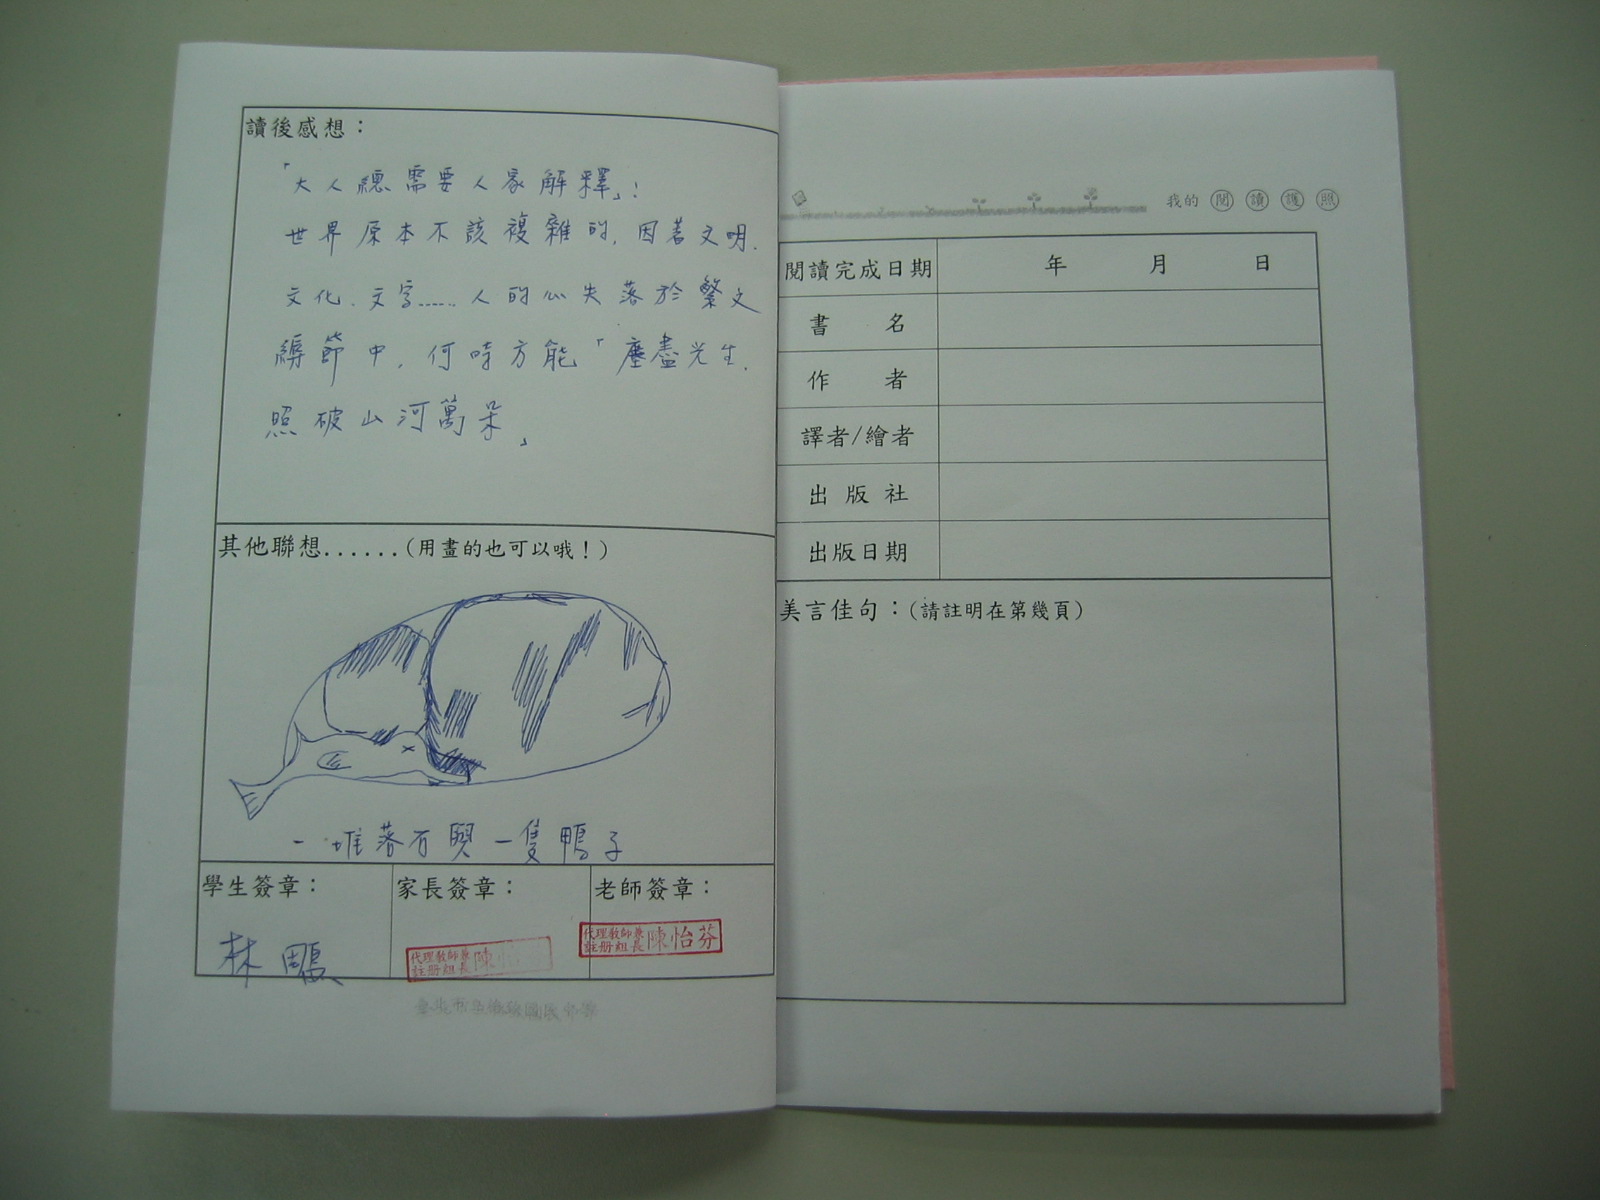 讀後感想：
「大人總需要人家解釋」！
世界原本不該複雜的，因著文明、
文化、文字……人的心失落於繁文
縟節中，何時方能「塵盡光生，
照破山河萬朵」
其他聯想......(用畫的也可以哦！)
一堆落石與一隻鴨子
學生簽章：
家長簽章：
老師簽章：
林
代理教師兼
註冊組長 陳怡
代理教師兼
註冊組長 陳怡芬
我的 閱 讀 護 照
閱讀完成日期 年 月 日
書 名
作 者
譯者/繪者
出 版 社
出版日期
美言佳句：(請註明在第幾頁)